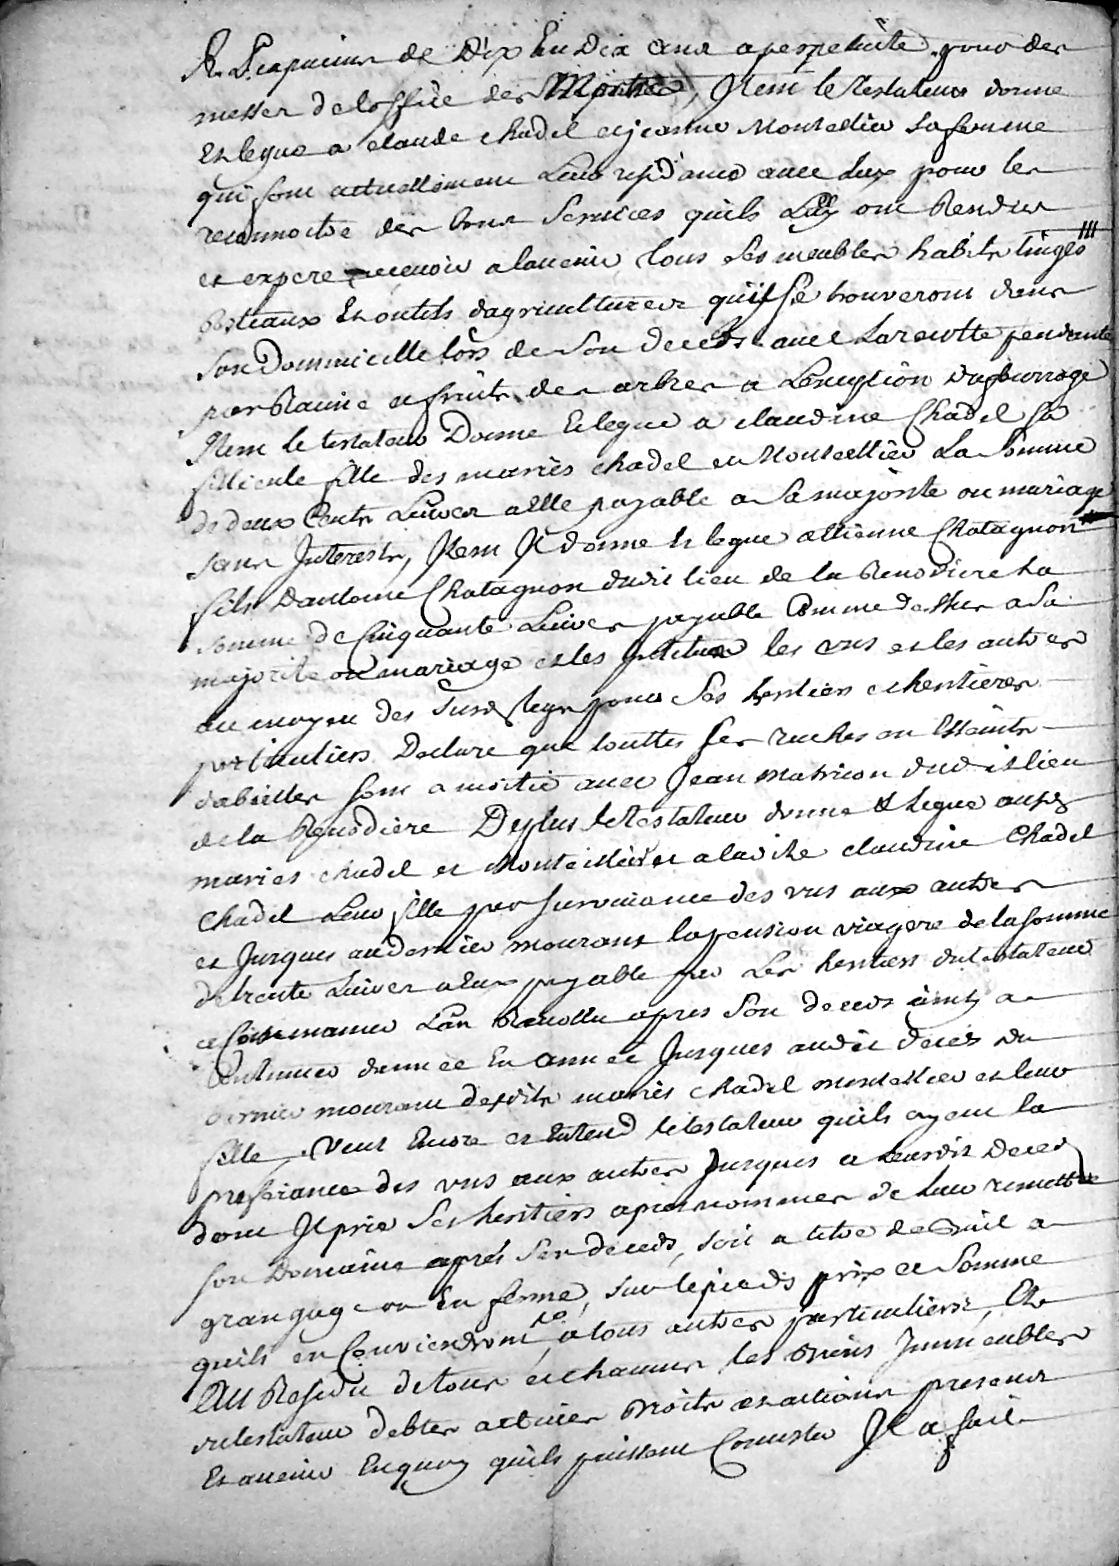 R. P. capucins de Dix En Dix ans a perpetuité pour des
messes de loffice des Morts, Item le Testateur donne
Et legue a claude chadel et jeanne Montellier sa femme
qui font actuellement Leur residance avec Luy pour les
reconnoitre des bons services quils Luy ont Rendus
et expere recevoir alavenir, tous ses meubles habits linges
Bestiaux Et outils dagriculture quil se trouveront dans
son Dommicille lors de son decets avec La reco‍lte pendante
par Racine et fruits des arbres a Lexception du fourrage
Item le testateur Donne Et legue a claudine Chadel sa
filleule fille des mariés chadel et Montellier La somme
de deux Cents Livres a elle payable a sa majorité ou mariage
sans Interests, Item Il donne Et legue a ettienne Chatagnon
fils D'antoine Chatagnon dudit lieu de la Renodiere La
somme de Cinquante Livres payable Comme dessus a sa
majorité ou mariage et les institue les uns et les autres
au moyen des susd. legs pour ses heritiers et heritieres
particuliers Declare que touttes ses ruches ou Essaints
dabeilles sont a moitié avec Jean Matricon dudit lieu
de la Renodiere Deplus le Testateur donne & legue ausd.
mariés chadel et Montellier et a ladite claudine Chadel
Chadel Leur fille par survivance des uns aux autres
et Jusques au dernier mourant la pension viagere de la somme
de trente Livres a Eux payable par Les heritiers du testateur
a Commancer Lan Revollu apres son decets ainsy a
Continuer dannée En année Jusques audit decés du
dernier mourant desdits mariés chadel montellier et leur
fille, Veut Encore et Entend le testateur quils ayent la
preferance des uns aux autres Jusques a Leursdit Deced
dont Il prie ses heritiers apres nommés de leur remettre
son Domaine aprés son deceds, soit a titre de Bail a
grangage ou En ferme, sur le pied du prix et somme
quils en Conviendront, a tous autres particuliers, Et
Au Residu de tous et chacuns les Biens Immeubles
du testateur debtes actives Droits et actions presents
Et avenir En quoy quils puissent Consister Il a fait